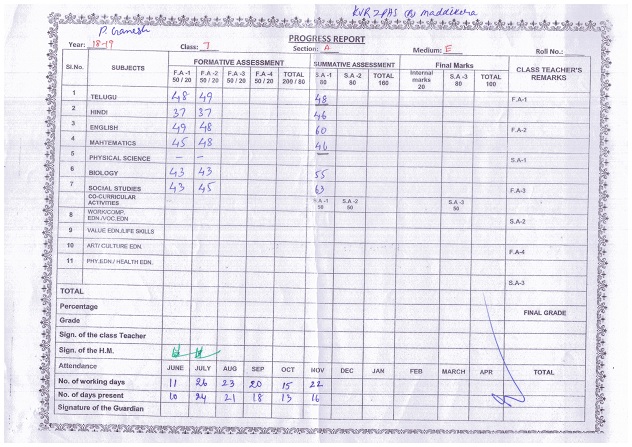 KVR ZPHS ON Maddikera
P. Ganesh
PROGRESS REPORT
Year: 18-19 Class: 7 Section: A Medium: E Roll No.:
Sl.No. SUBJECTS FORMATIVE ASSESSMENT SUMMATIVE ASSESSMENT Final Marks CLASS TEACHER'S REMARKS
F.A -1 50 / 20 F.A -2 50 / 20 F.A -3 50 / 20 F.A -4 50 / 20 TOTAL 200 / 80 S.A -1 80 S.A -2 80 TOTAL 160 Internal marks 20 S.A -3 80 TOTAL 100
1 TELUGU 48 49 48 F.A-1
2 HINDI 37 37 46
3 ENGLISH 49 48 60 F.A-2
4 MAHTEMATICS 45 48 46
5 PHYSICAL SCIENCE - - S.A-1
6 BIOLOGY 43 43 55
7 SOCIAL STUDIES 43 45 63 F.A-3
CO-CURRICULAR ACTIVITIES S.A -1 50 S.A -2 50 S.A -3 50
8 WORK/COMP. EDN./VOC.EDN S.A-2
9 VALUE EDN./LIFE SKILLS
10 ART/ CULTURE EDN. F.A-4
11 PHY.EDN./ HEALTH EDN.
S.A-3
TOTAL
Percentage FINAL GRADE
Grade
Sign. of the class Teacher
Sign. of the H.M.
Attendance JUNE JULY AUG SEP OCT NOV DEC JAN FEB MARCH APR TOTAL
No. of working days 11 26 23 20 15 22
No. of days present 10 24 21 18 13 16
Signature of the Guardian